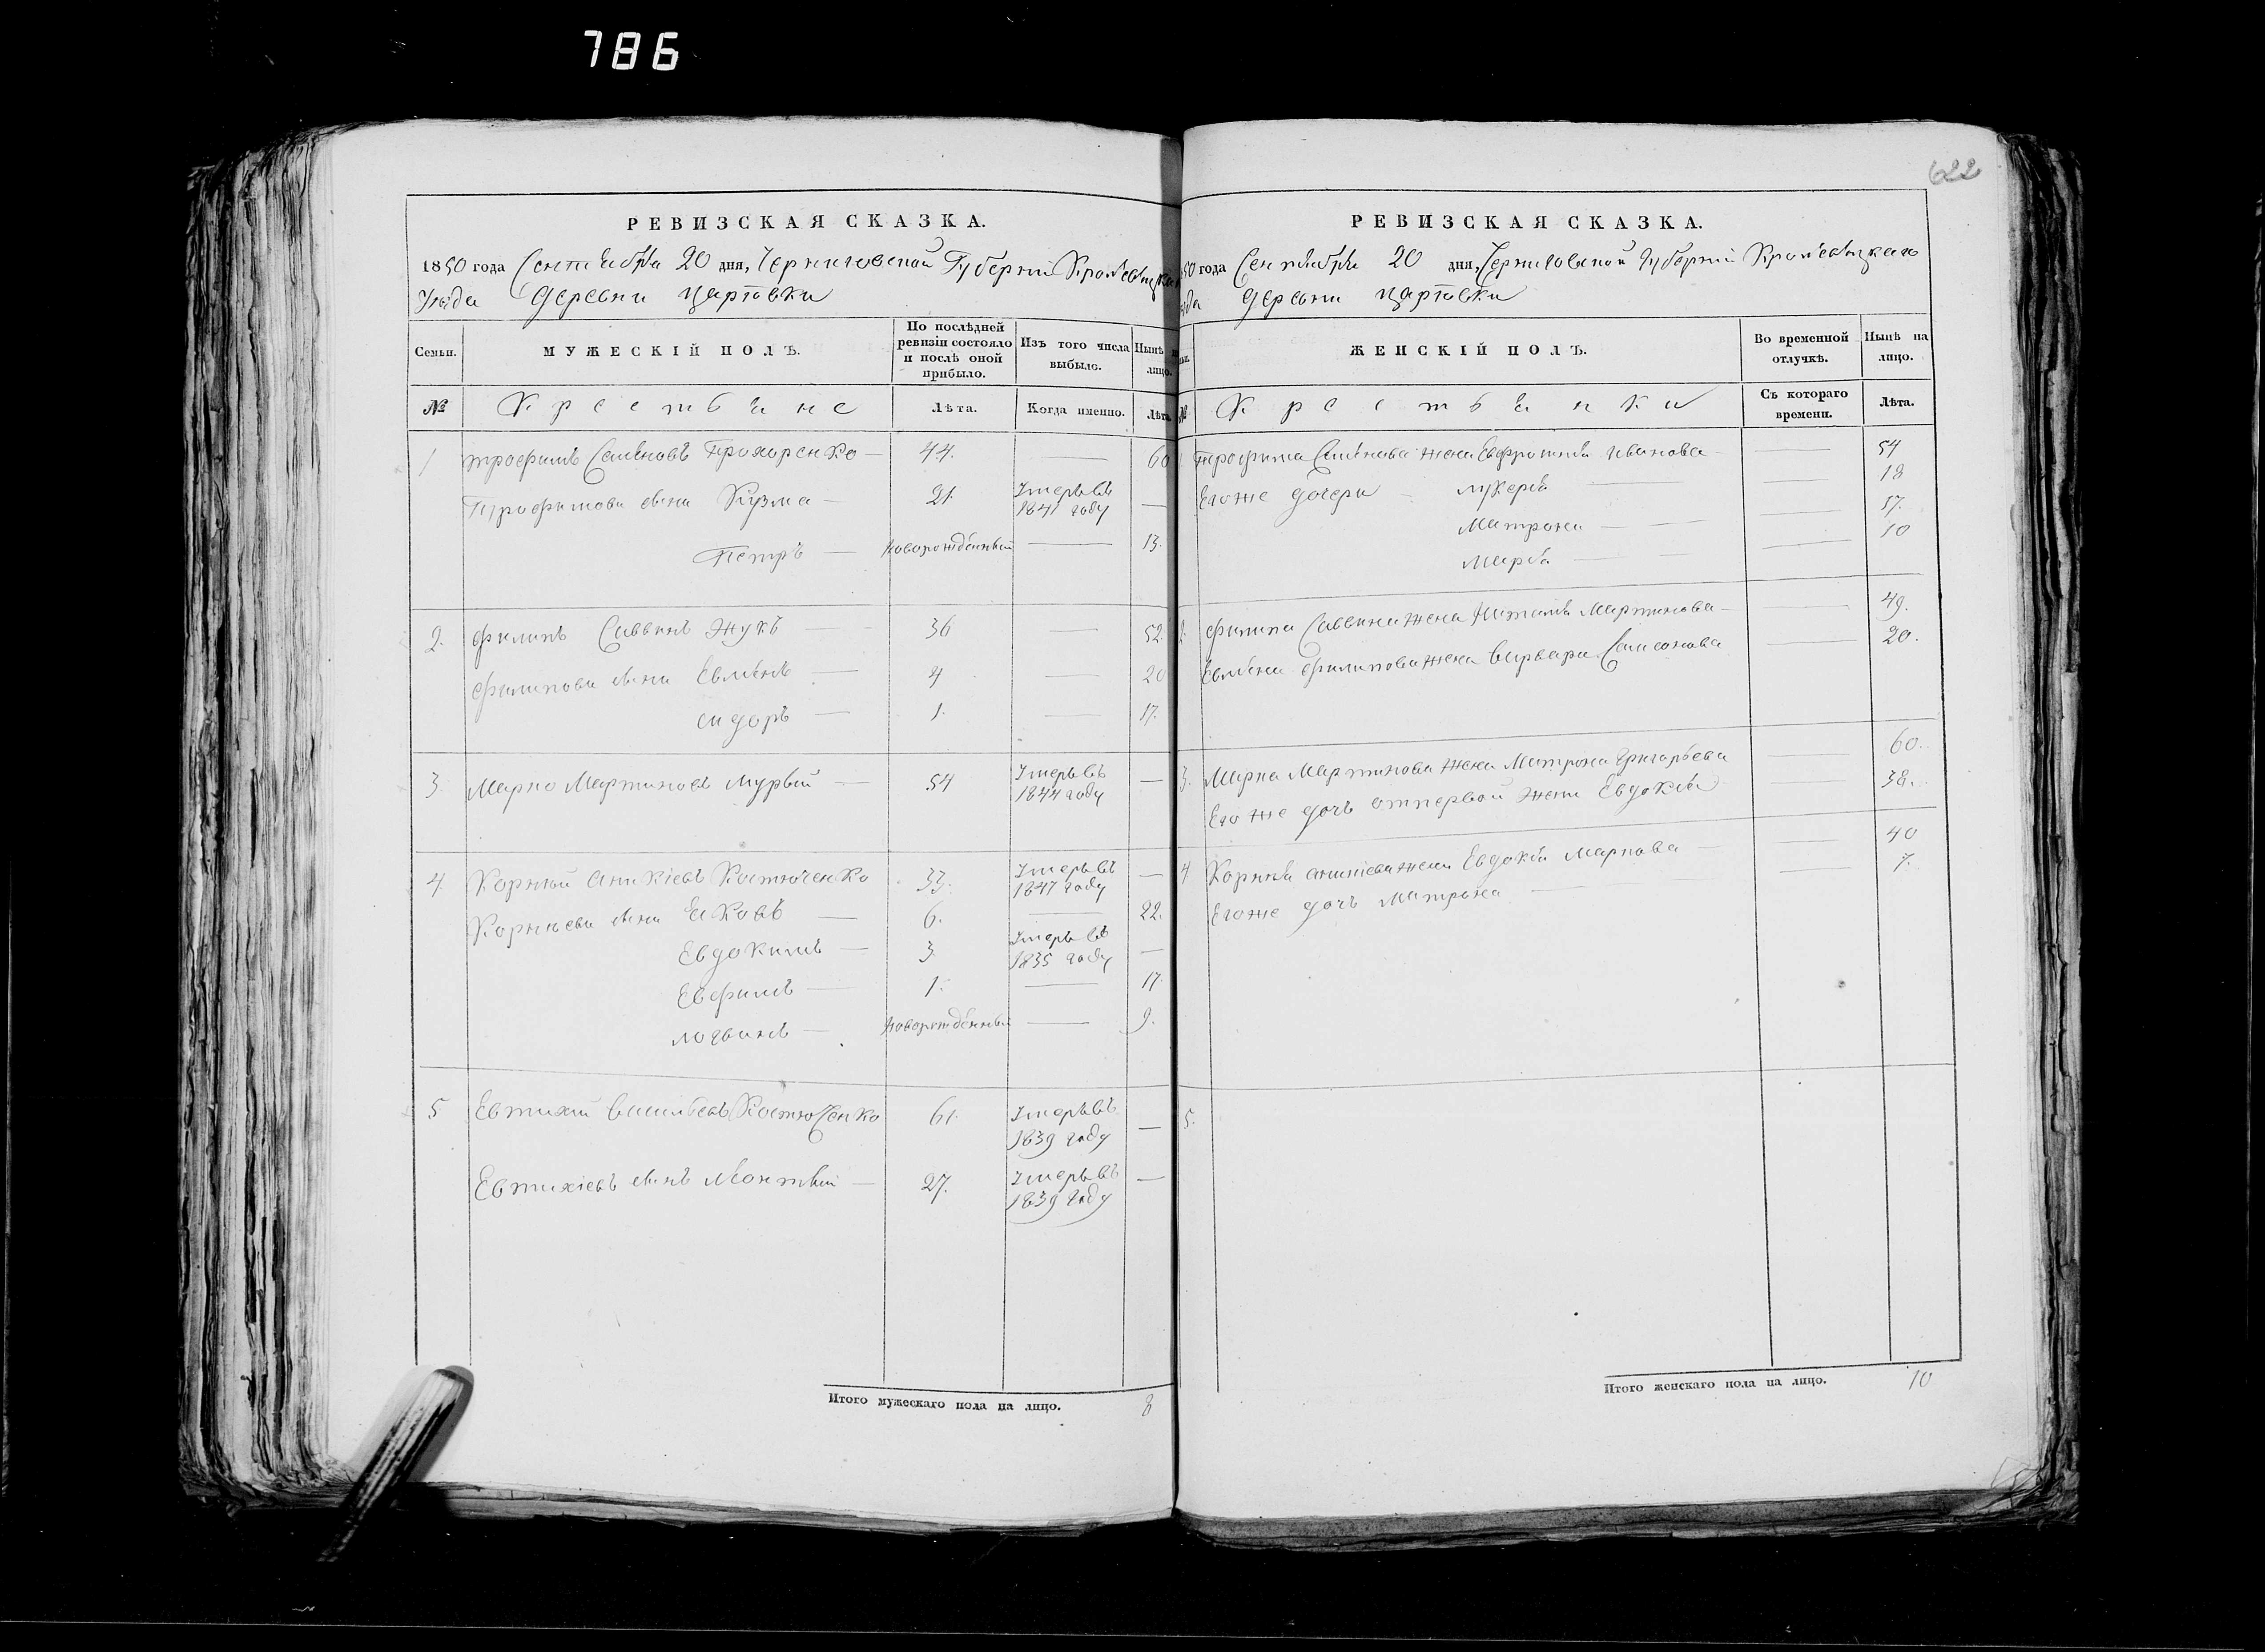 786
622
РЕВИЗСКАЯ СКАЗКА.
1850 года Сентября 20 дня, Черниговской Губернии Кролевецкаго
Уезда Деревни Царговки
Семьи. МУЖЕСКІЙ ПОЛЪ. По послѣдней ревизіи состояло и послѣ оной прибыло. Изъ того числа выбыло. Нынѣ на лицо.
№ Крестьяне Лѣта. Когда именно. Лѣта
1 Трофимъ Семеновъ Прохоренко — 44. — 60
Трофимова сыны Кузма — 21. Умеръ въ 1841 году —
Петръ — новорожденный — 13.
2. Филипъ Саввинъ Жукъ — 36 — 52.
Филипови сыни Евменъ — 4 — 20
Сидоръ — 1. — 17.
3. Марко Мартиновъ Мурвый — 54 Умеръ въ 1844 году —
4. Корнѣй Аникіевъ Костюченко 33. Умеръ въ 1847 году —
Корнѣеви сыни Яковъ — 6. — 22.
Евдокимъ — 3. Умеръ въ 1835 году —
Евфимъ — 1. — 17
Логвинъ — новорожденный — 9.
5 Евтихій Васильевъ Костюченко 61. Умеръ въ 1839 году —
Евтихіевъ сынъ Леонтѣй — 27. Умеръ въ 1839 году —
Итого мужескаго пола на лицо. 8
РЕВИЗСКАЯ СКАЗКА.
50 года Сентября 20 дня, Черниговской Губерніи Кролевецкаго
зда Деревни Царговки
ЖЕНСКІЙ ПОЛЪ. Во временной отлучкѣ. Нынѣ на лицо.
№ Крестьянки Съ котораго времени. Лѣта.
Трофима Семенова жена Евфросинія Иванова — 54
Его же дочери Лукерія — 18
Матрона — 17.
Марія — 10
2. Филипа Саввина жена Наталія Мартинова — 49.
Евмена Филипова жена Варвара Самсонова — 20.
3. Марка Мартинова жена Матрона Григорьева — 60.
Его же дочь от первой жены Евдокія — 38.
4 Корнѣя Аникіева жена Евдокія Маркова — 40
Его же дочь Матрона — 7.
5.
Итого женскаго пола на лицо. 10